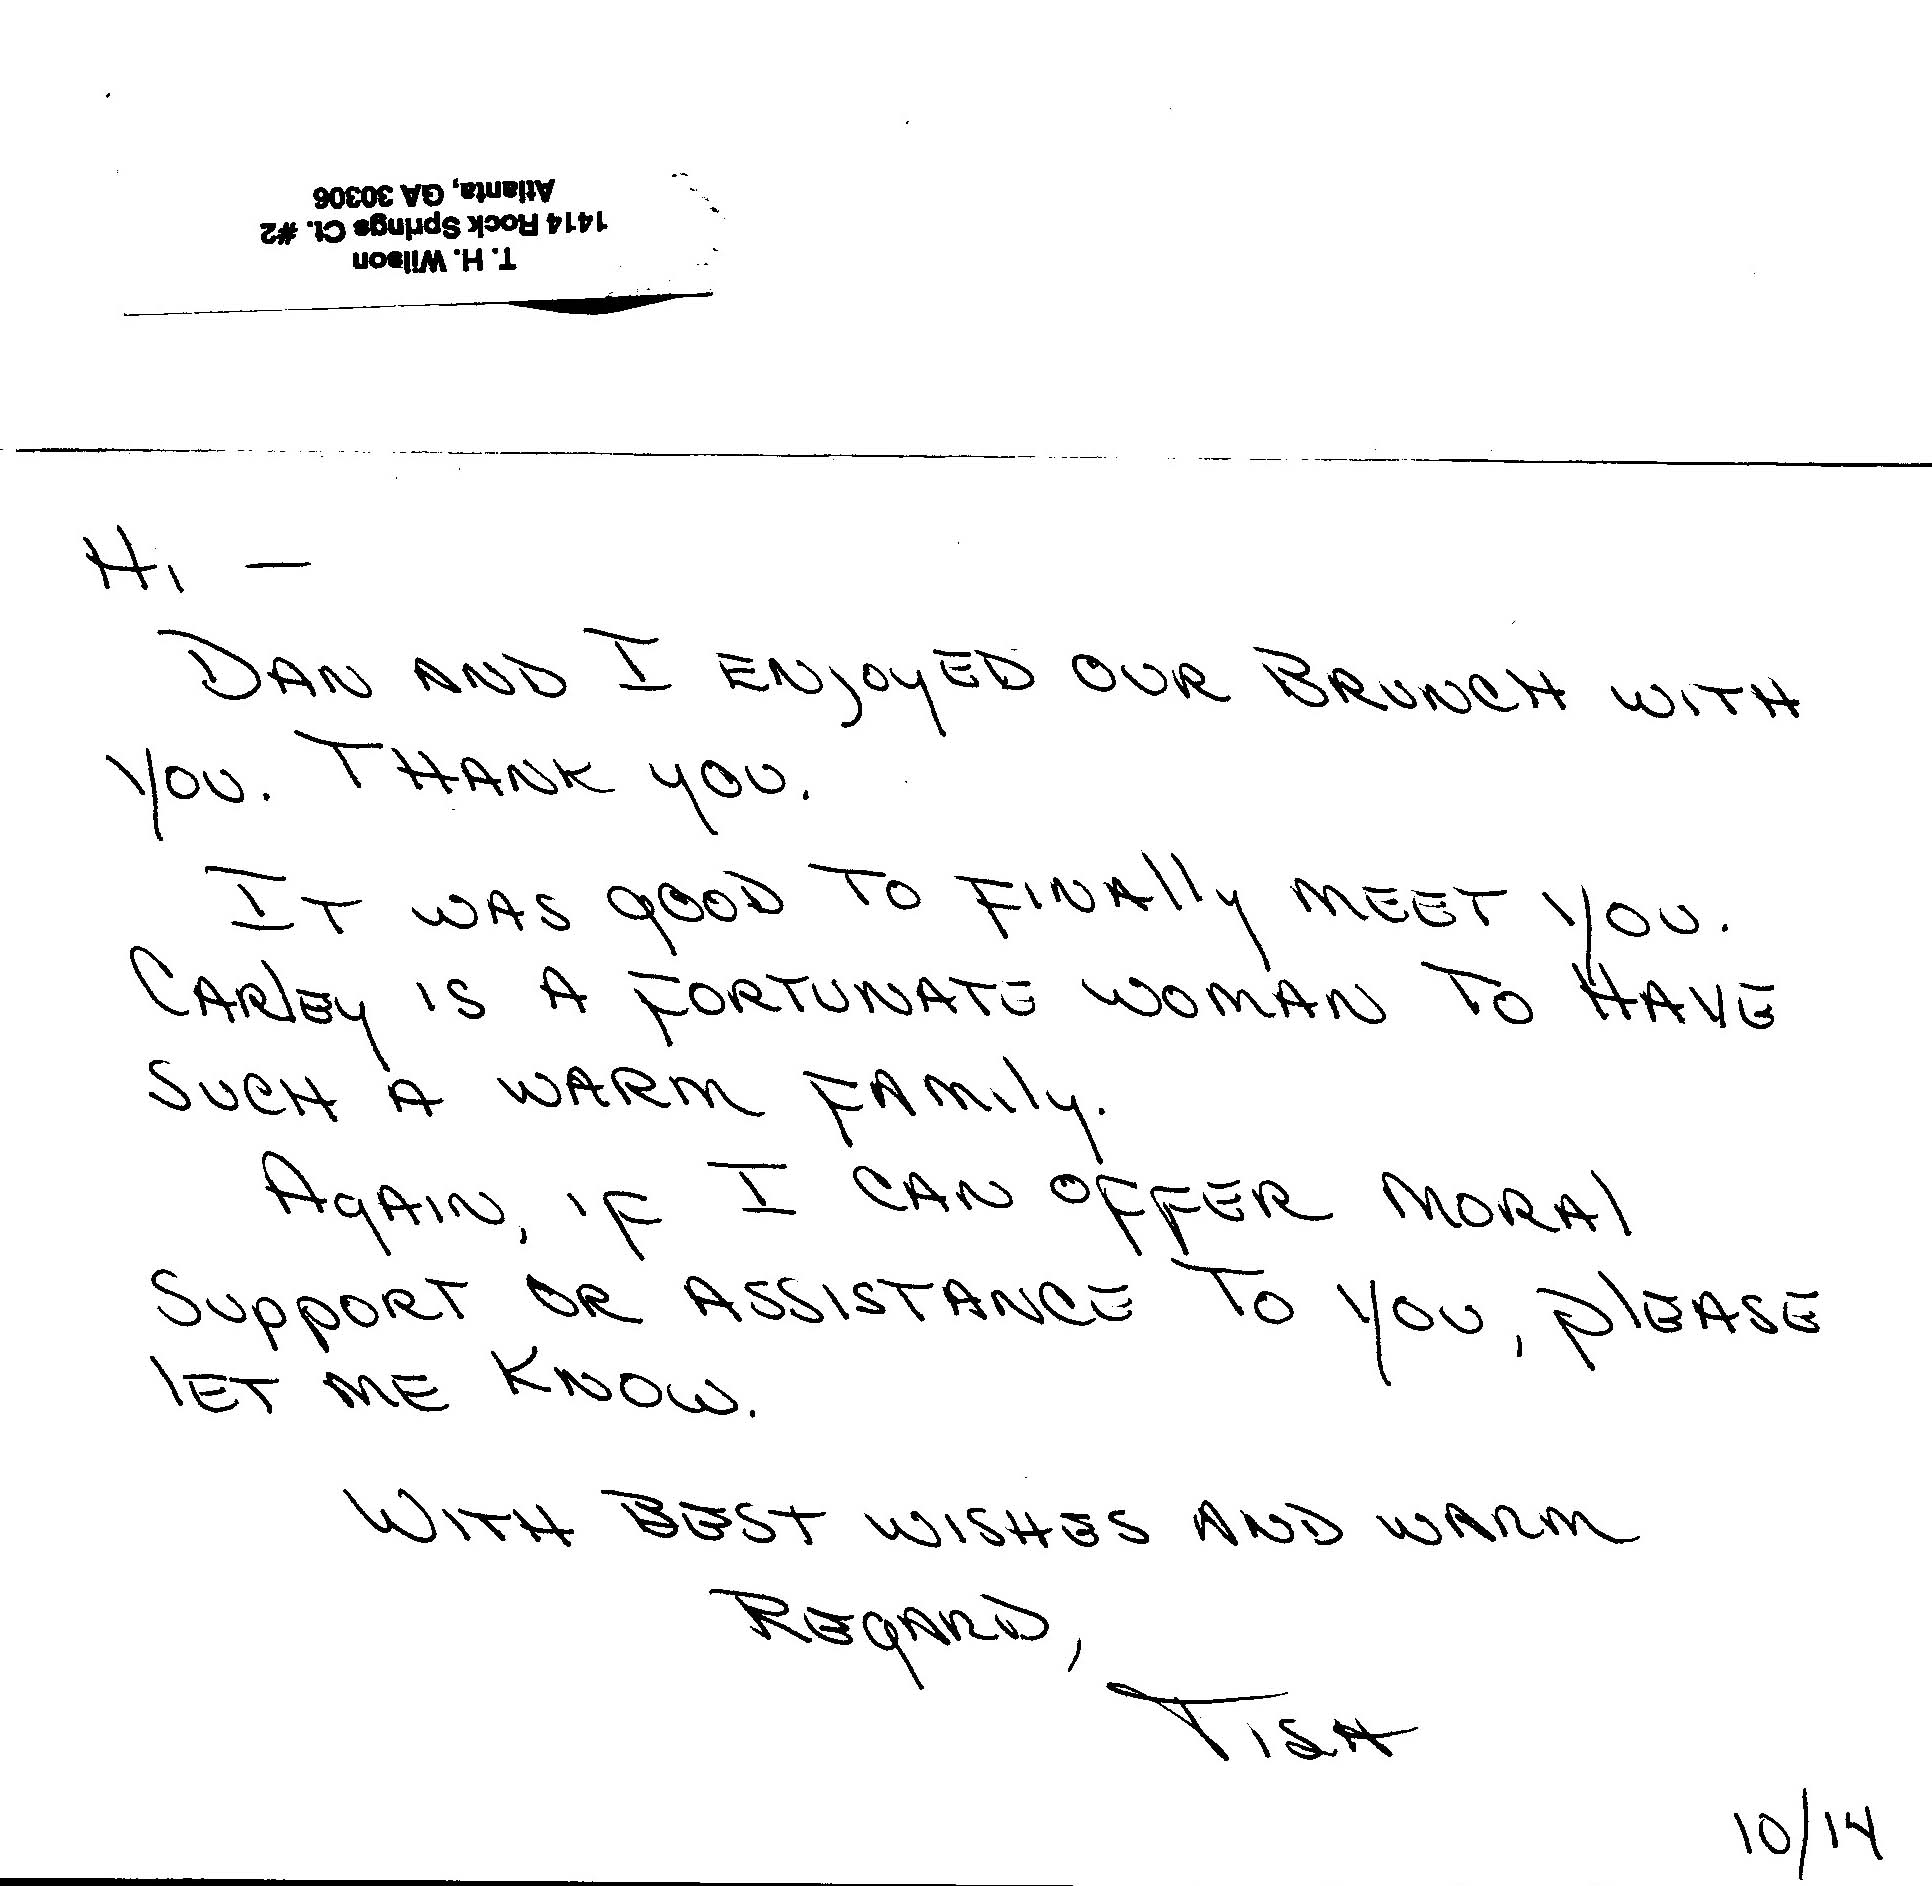 T. H. Wilson
1414 Rock Springs Ct. #2
Atlanta, GA 30306
Hi —
Dan and I enjoyed our Brunch with
you. Thank you.
It was good to finally meet you.
Carley is a fortunate woman to have
such a warm family.
Again, if I can offer moral
support or assistance to you, please
let me know.
With Best wishes and warm
Regard,
Tish
10/14